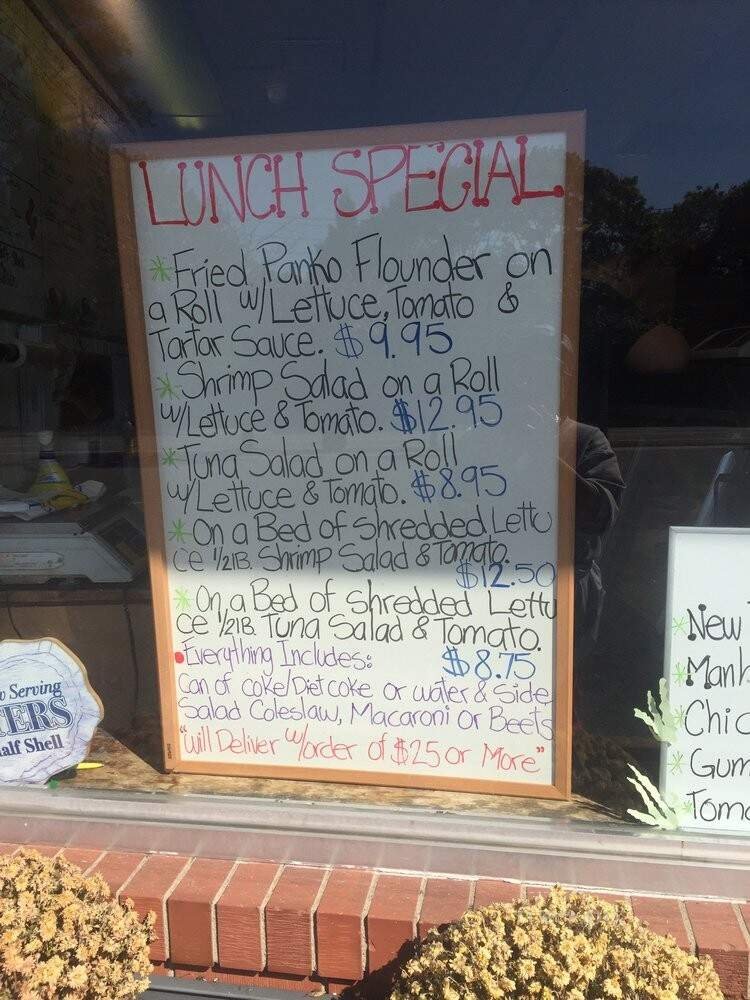 LUNCH SPECIAL
* Fried Panko Flounder on
a Roll w/Lettuce, Tomato &
Tartar Sauce. $9.95
* Shrimp Salad on a Roll
w/Lettuce & Tomato. $12.95
* Tuna Salad on a Roll
w/Lettuce & Tomato. $8.95
* On a Bed of shredded Lettu
ce 1/2lB. Shrimp Salad & Tomato.
$12.50
* On a Bed of shredded Lettu
ce 1/2lB. Tuna Salad & Tomato.
• Everything Includes: $8.75
Can of coke/Diet coke or water & Side
Salad Coleslaw, Macaroni or Beets
"will Deliver w/order of $25 or More"
Serving
ERS
alf Shell
* New
* Manh
* Chic
* Gum
* Toma